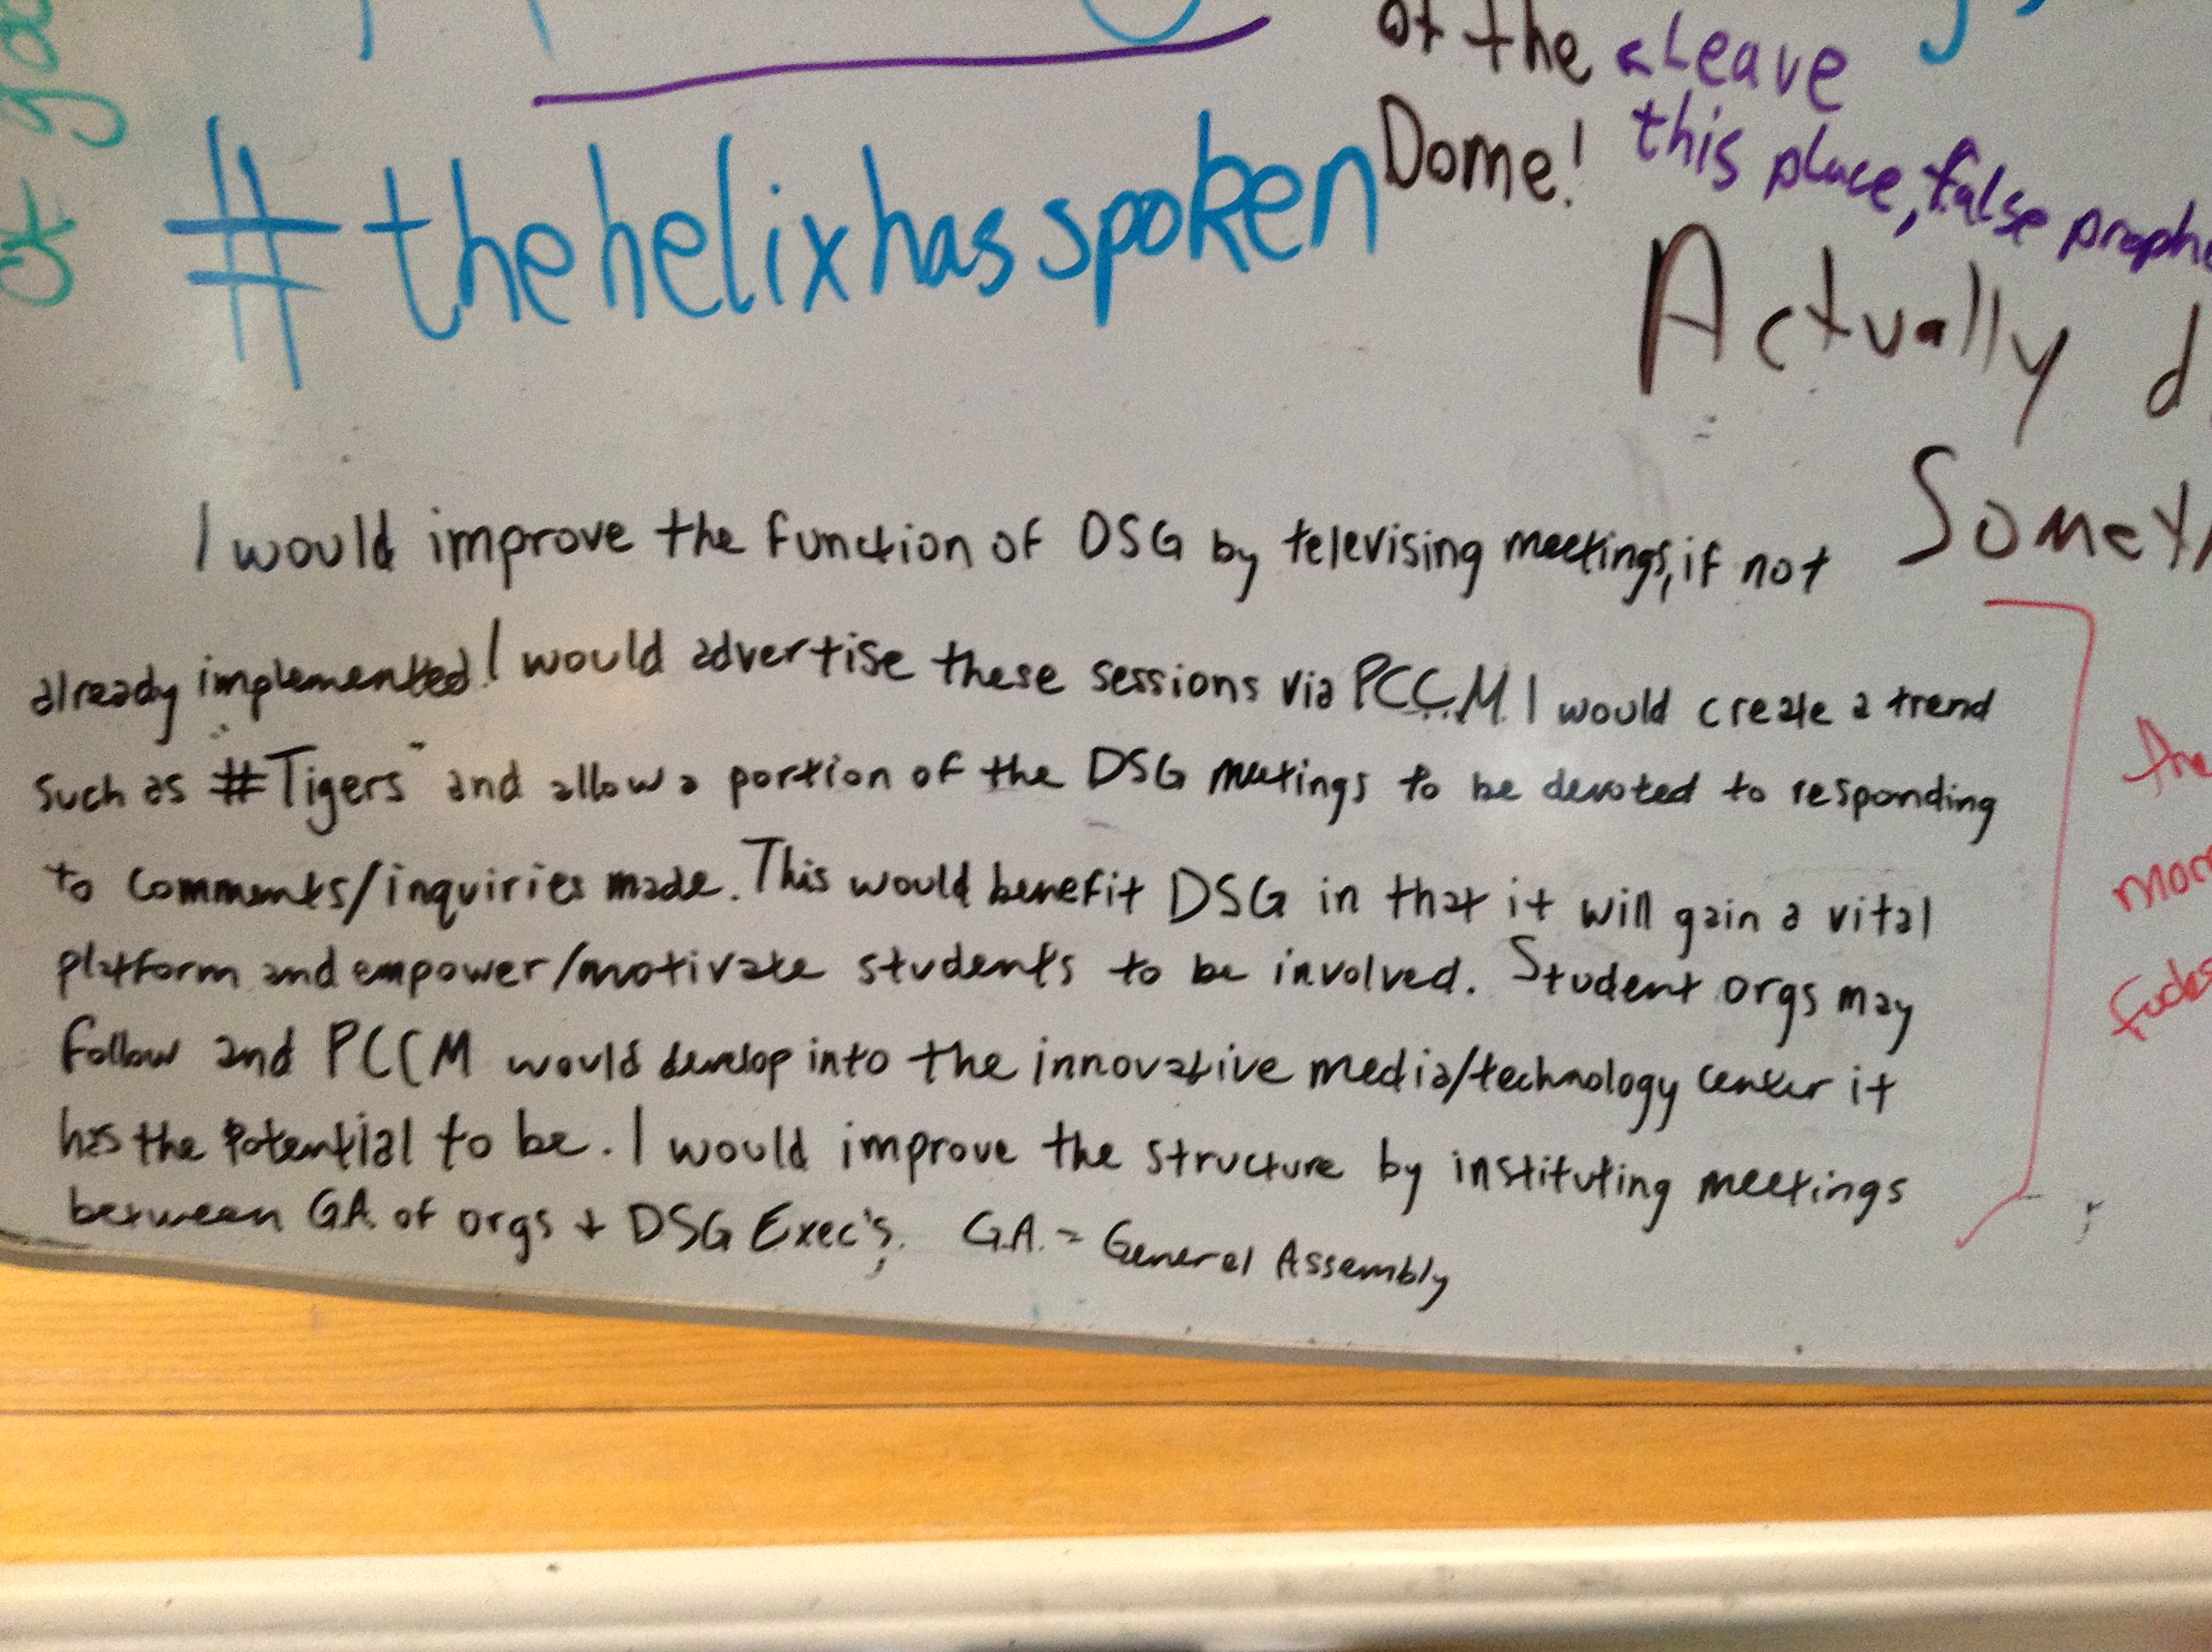 of the
Dome!
<Leave
this place, false
#thehelixhasspoken
Actually
I would improve the function of DSG by televising meetings, if not
already implemented. I would advertise these sessions via PCCM. I would create a trend
such as "#Tigers" and allow a portion of the DSG meetings to be devoted to responding
to comments/inquiries made. This would benefit DSG in that it will gain a vital
platform and empower/motivate students to be involved. Student orgs may
follow and PCCM would develop into the innovative media/technology center it
has the potential to be. I would improve the structure by instituting meetings
between G.A. of orgs + DSG Exec's. G.A. = General Assembly